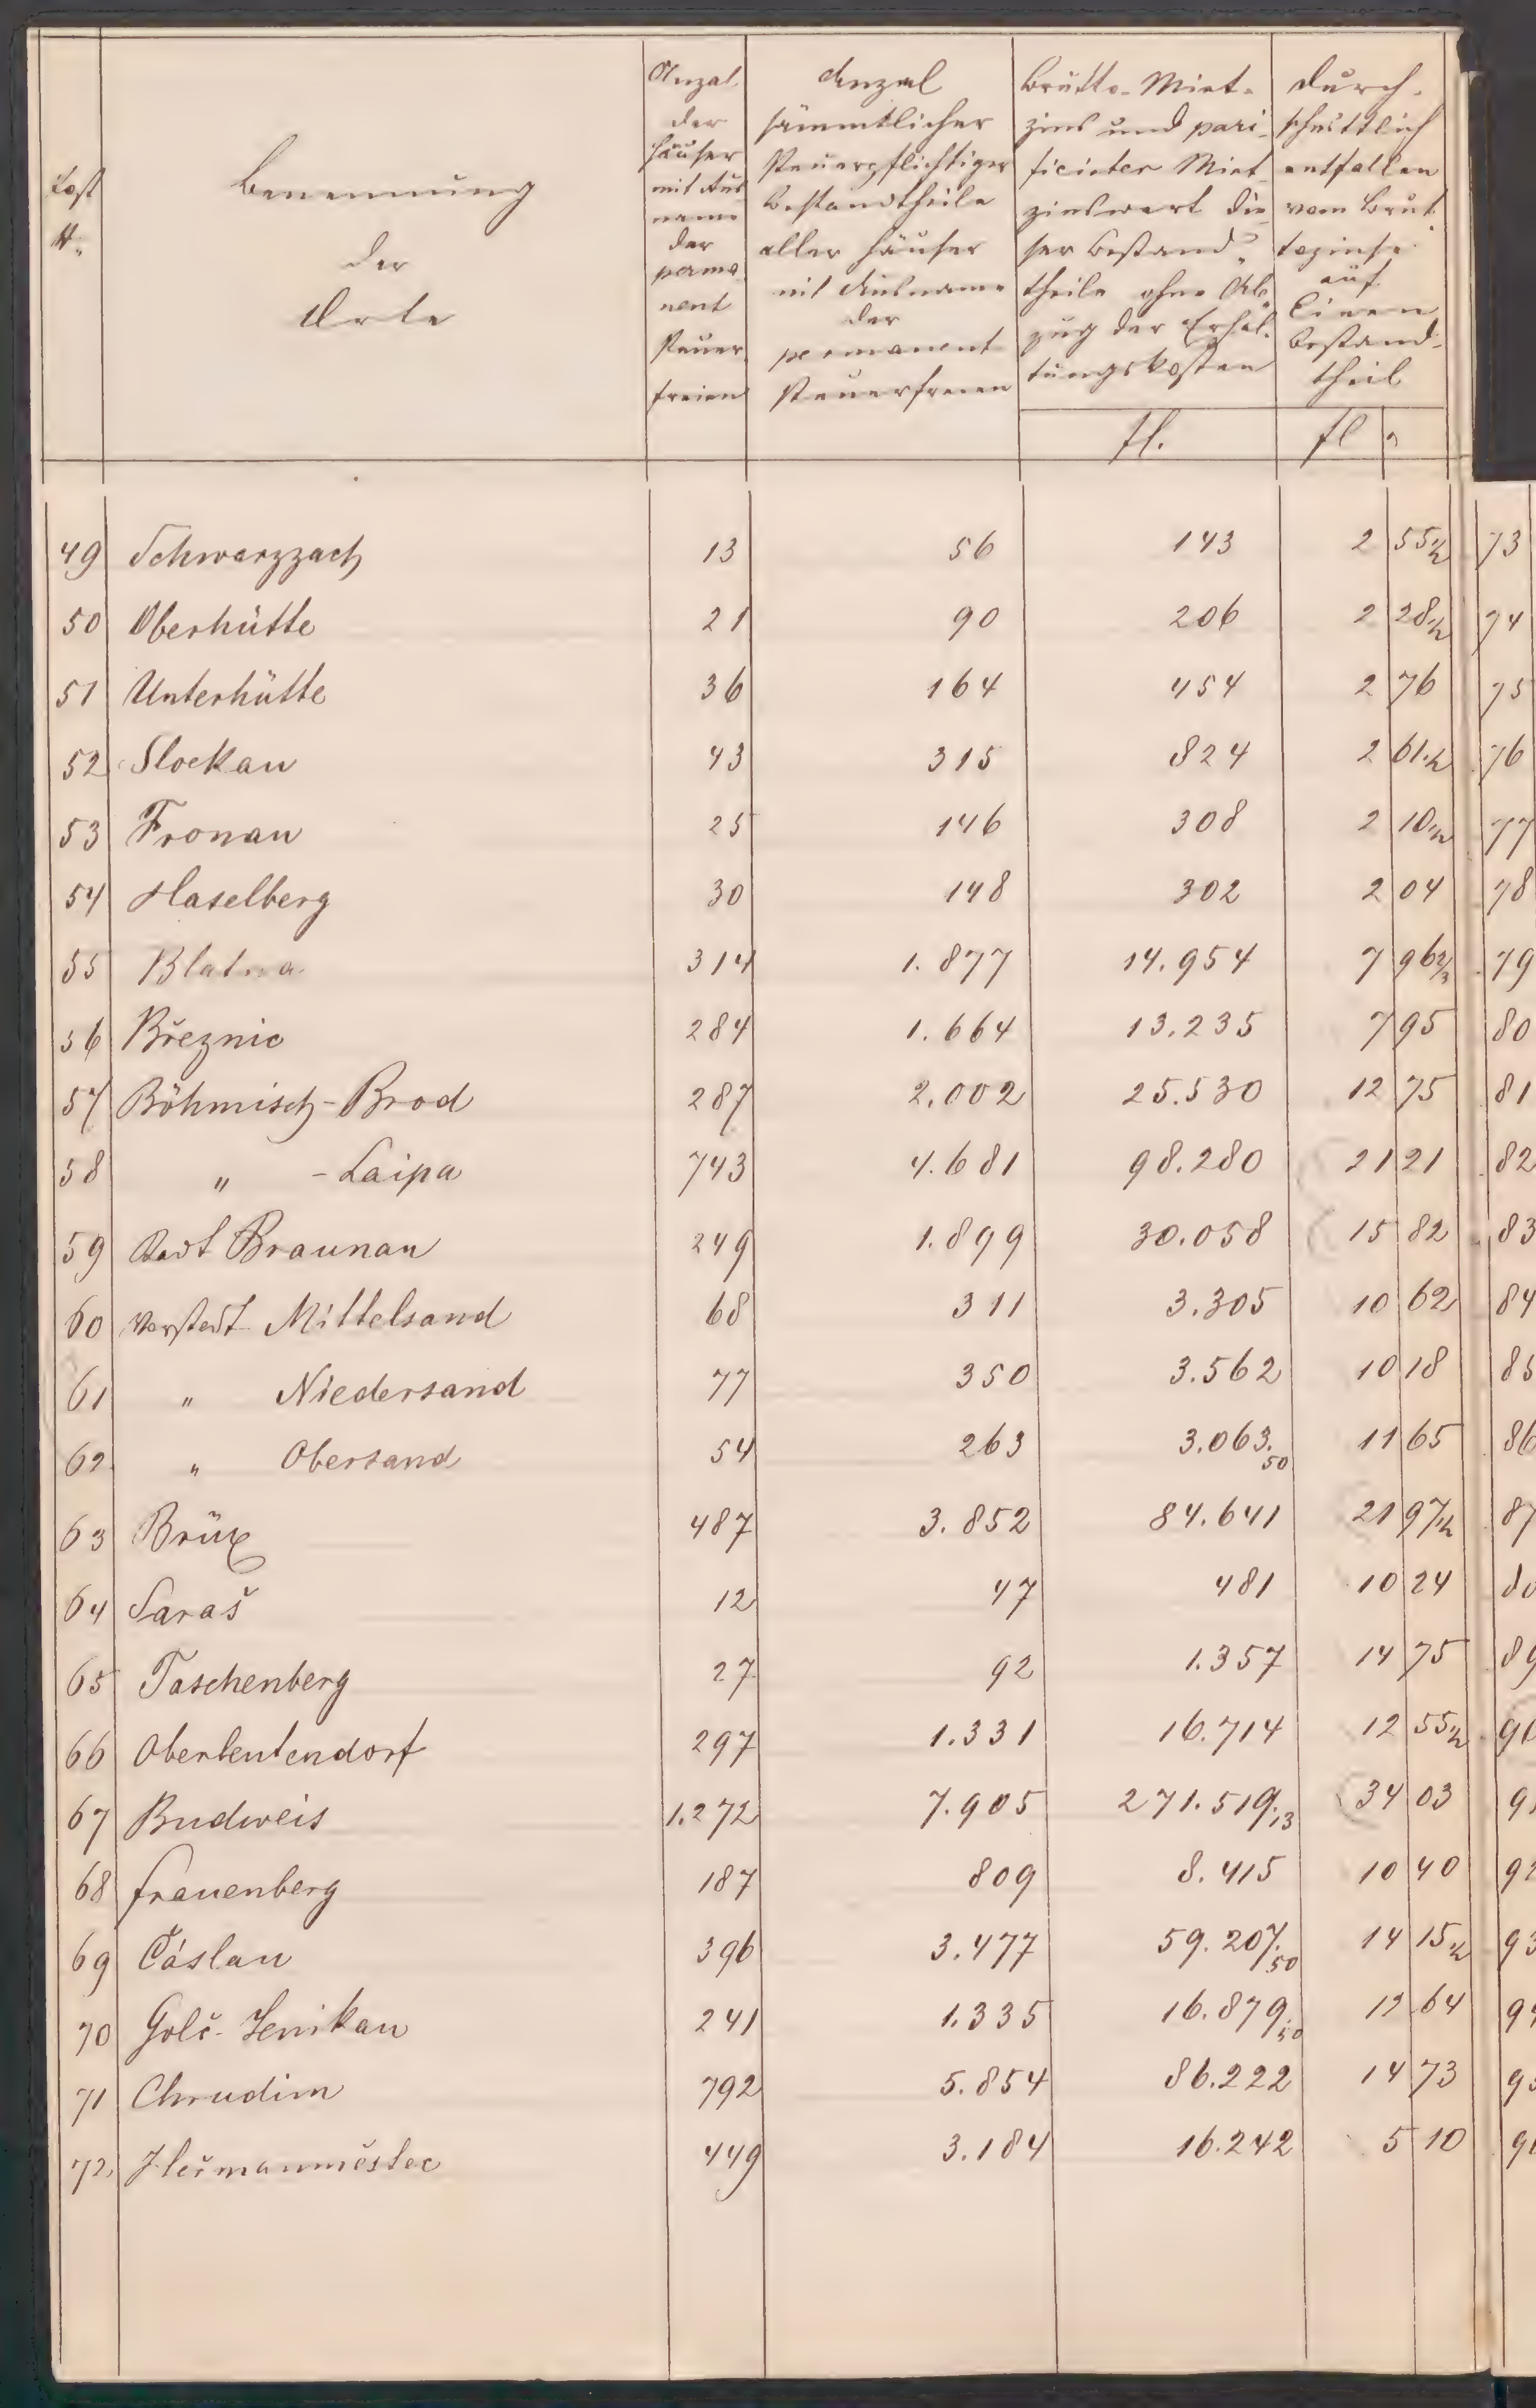 Post
N:
Benennung
der
Orte
Anzal
der
Häuser
mit Aus
name
der
perma
nent
steuer
freien
Anzal
sämmtlicher
steuerpflichtiger
Bestandtheile
aller Häuser
mit Ausname
der
permanent
steuerfreien
Brutto-Miet-
zins und pari-
ficirter Miet-
zinswert die-
ser Bestand-
theile ohne Ab-
zug der Erhal-
tungskosten
fl.
Durch-
schnittlich
entfallen
vom Brut-
tozinse
auf
Einen
Bestand-
theil
fl
49 Schwarzzach 13 56 143 2 55 1/2 73
50 Oberhütte 21 90 206 2 28 1/2 74
51 Unterhütte 36 164 454 2 76 75
52 Stockau 43 315 824 2 61 1/2 76
53 Fronau 25 146 308 2 10 1/2 77
54 Haselberg 30 148 302 2 04 78
55 Blatna 314 1.877 14.954 7 96 2/3 79
56 Březnic 284 1.664 13.235 7 95 80
57 Böhmisch-Brod 287 2.002 25.530 12 75 81
58 " -Laipa 743 4.681 98.280 21 21 82
59 Stadt Braunau 249 1.899 30.058 15 82 83
60 Vorstadt Mittelsand 68 311 3.305 10 62 84
61 " Niedersand 77 350 3.562 10 18 85
62 " Obersand 54 263 3.063.50 11 65 86
63 Brüx 487 3.852 84.641 21 97 1/2 87
64 Saraš 12 47 481 10 24
65 Taschenberg 27 92 1.357 14 75 89
66 Oberleutendorf 297 1.331 16.714 12 55 1/2
67 Budweis 1.272 7.905 271.519.13 34 03
68 Frauenberg 187 809 8.415 10 40
69 Čáslau 396 3.477 59.207.50 14 15 1/2
70 Golč-Jenikau 241 1.335 16.879.50 12 64
71 Chrudim 792 5.854 86.222 14 73
72 Heřmanměstec 449 3.184 16.242 5 10